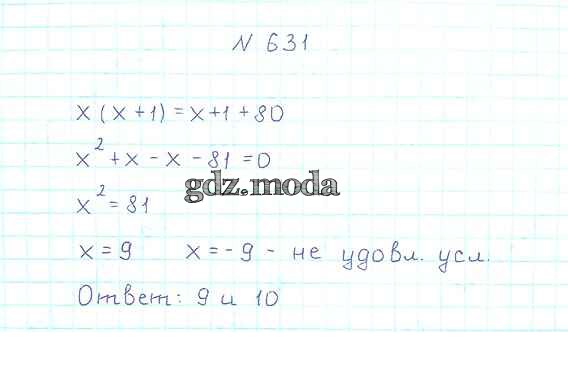 N 631
x(x+1)=x+1+80
x²+x-x-81=0
gdz.moda
x²=81
x=9 x=-9 - не удовл. усл.
Ответ: 9 и 10